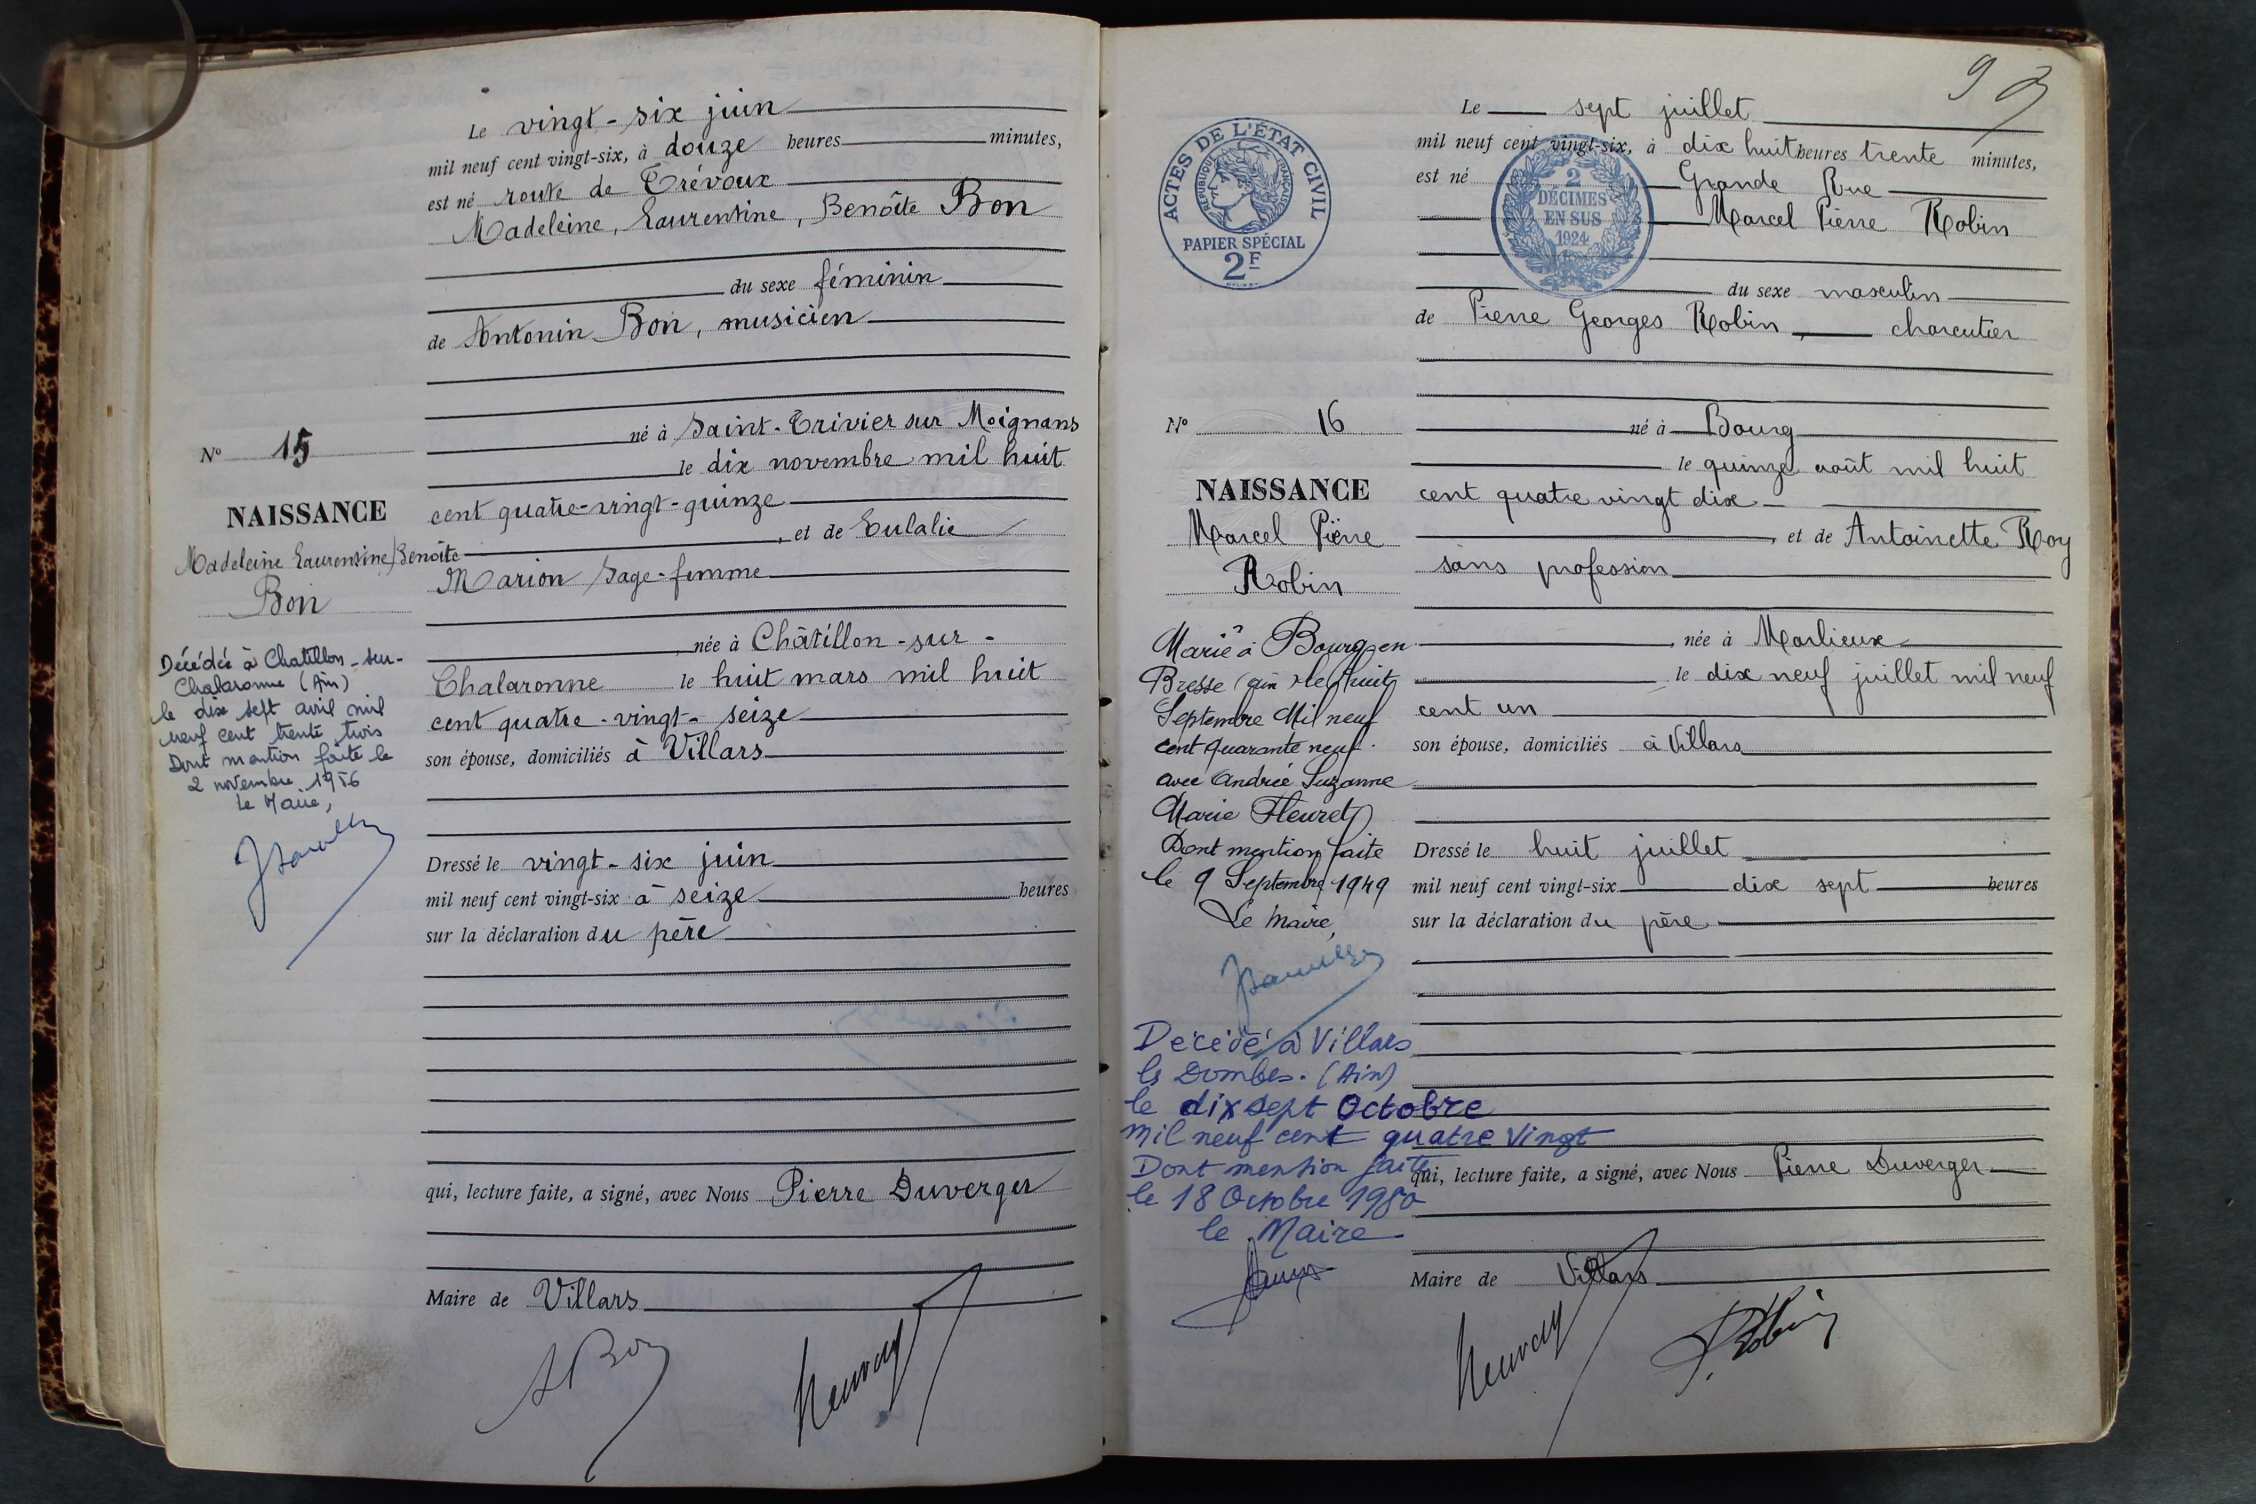 Le vingt-six juin
mil neuf cent vingt-six, à douze heures minutes,
est né route de Trévoux
Madeleine, Laurentine, Benoîte Bon
du sexe féminin
de Antonin Bon, musicien
né à Saint-Trivier sur Moignans
le dix novembre mil huit
cent quatre-vingt-quinze
, et de Eulalie
Marion sage-femme
née à Châtillon-sur-
Chalaronne le huit mars mil huit
cent quatre-vingt-seize
son épouse, domiciliés à Villars
Dressé le vingt-six juin
mil neuf cent vingt-six à seize heures
sur la déclaration du père
qui, lecture faite, a signé, avec Nous Pierre Duverger
Maire de Villars
ABon
N° 15
NAISSANCE
Madeleine Laurentine, Benoîte
Bon
Décédée à Chatillon-sur-
Chalaronne (Ain)
le dix sept avril mil
neuf cent trente trois
Dont mention faite le
2 novembre 1956
Le Maire,
9
ACTES DE L'ÉTAT CIVIL
RÉPUBLIQUE FRANÇAISE
PAPIER SPÉCIAL
2F
2
DÉCIMES
EN SUS
1924
Le sept juillet
mil neuf cent vingt-six, à dix huit heures trente minutes,
est né Grande Rue
Marcel Pierre Robin
du sexe masculin
de Pierre Georges Robin, charcutier
né à Bourg
le quinze août mil huit
cent quatre vingt dix
, et de Antoinette Roy
sans profession
, née à Marlieux
le dix neuf juillet mil neuf
cent un
son épouse, domiciliés à Villars
Dressé le huit juillet
mil neuf cent vingt-six dix sept heures
sur la déclaration du père
qui, lecture faite, a signé, avec Nous Pierre Duverger
Maire de Villars
P. Robin
N° 16
NAISSANCE
Marcel Pierre
Robin
Marié à Bourg en
Bresse (Ain) le huit
Septembre Mil neuf
cent quarante neuf.
avec Andrée Suzanne
Marie Fleuret
Dont mention faite
le 9 Septembre 1949
Le Maire,
Décédé à Villars
les Dombes. (Ain)
le dix sept Octobre
mil neuf cent quatre vingt
Dont mention faite
le 18 Octobre 1980
le Maire